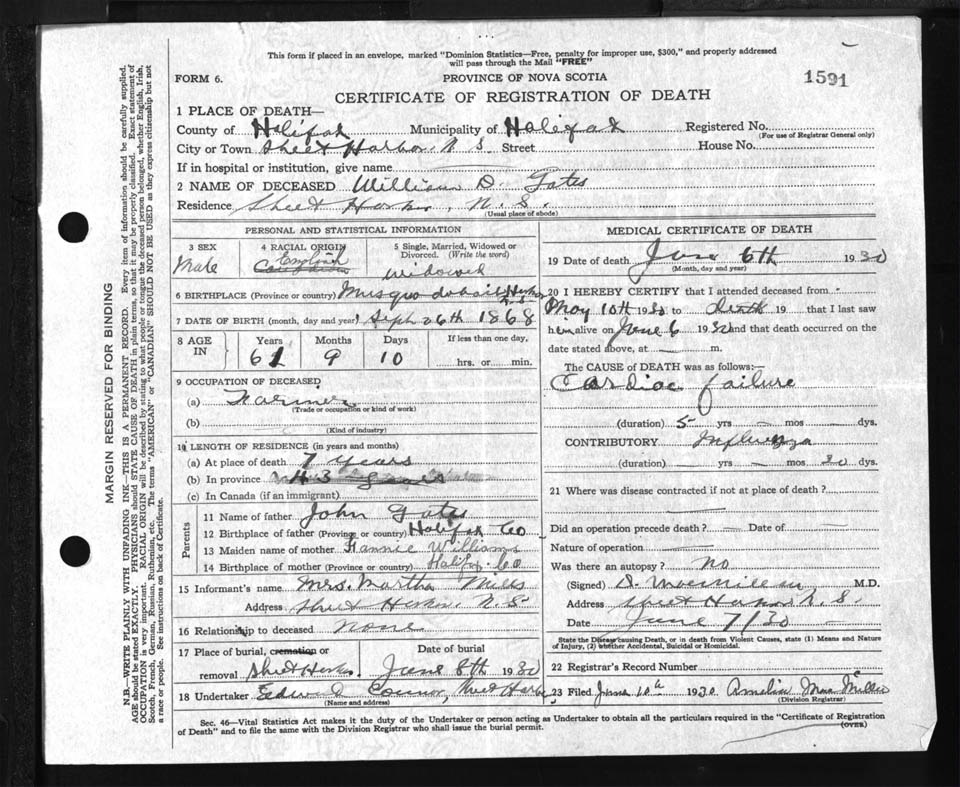 This form if placed in an envelope, marked "Dominion Statistics—Free, penalty for improper use, $300," and properly addressed
will pass through the Mail "FREE"
FORM 6.
PROVINCE OF NOVA SCOTIA
1591
CERTIFICATE OF REGISTRATION OF DEATH
1 PLACE OF DEATH—
County of Halifax Municipality of Halifax Registered No.
(For use of Registrar General only)
City or Town Sheet Harbor N. S. Street House No.
If in hospital or institution, give name
2 NAME OF DECEASED William D. Gates
Residence Sheet Harbor, N. S.
(Usual place of abode)
PERSONAL AND STATISTICAL INFORMATION
3 SEX
Male
4 RACIAL ORIGIN
English
5 Single, Married, Widowed or
Divorced. (Write the word)
widowed
6 BIRTHPLACE (Province or country) Musquodoboit Harbor
N.S.
7 DATE OF BIRTH (month, day and year) Sept 26th 1868
8 AGE
IN
Years
61
Months
9
Days
10
If less than one day,
hrs. or min.
9 OCCUPATION OF DECEASED
(a) Farmer
(Trade or occupation or kind of work)
(b)
(Kind of industry)
10 LENGTH OF RESIDENCE (in years and months)
(a) At place of death 7 years
(b) In province
(c) In Canada (if an immigrant)
Parents
11 Name of father John Gates
12 Birthplace of father (Province or country) Halifax Co
13 Maiden name of mother Fannie Williams
14 Birthplace of mother (Province or country) Halifax Co
15 Informant's name Mrs. Martha Mills
Address Sheet Harbor, N. S.
16 Relationship to deceased none
17 Place of burial, cremation or
removal Sheet Harbor June 8th 1930
18 Undertaker Edward Connor, Sheet Harbor
(Name and address)
MEDICAL CERTIFICATE OF DEATH
19 Date of death June 6th 1930
(Month, day and year)
20 I HEREBY CERTIFY that I attended deceased from
May 10th 1930 to death 19 that I last saw
him alive on June 6 1930 and that death occurred on
date stated above, at — m.
The CAUSE of DEATH was as follows:
Cardiac failure
(duration) 5 yrs — mos — dys.
CONTRIBUTORY Influenza
(duration) — yrs — mos 30 dys.
21 Where was disease contracted if not at place of death?
Did an operation precede death? — Date of —
Nature of operation —
Was there an autopsy? No
(Signed) M.D.
Address Sheet Harbor N. S.
Date June 7/30
State the Disease causing Death, or in death from Violent Causes, state (1) Means and Nature
of Injury, (2) whether Accidental, Suicidal or Homicidal.
22 Registrar's Record Number
23 Filed June 10th 1930. Amelia
(Division Registrar)
Sec. 46—Vital Statistics Act makes it the duty of the Undertaker or person acting as Undertaker to obtain all the particulars required in the "Certificate of Registration
of Death" and to file the same with the Division Registrar who shall issue the burial permit.
(OVER)
MARGIN RESERVED FOR BINDING
N.B.—WRITE PLAINLY WITH UNFADING INK—THIS IS A PERMANENT RECORD. Every item of information should be carefully supplied.
AGE should be stated EXACTLY. PHYSICIANS should STATE CAUSE OF DEATH in plain terms, so that it may be properly classified. Exact statement of
OCCUPATION is very important. RACIAL ORIGIN will be described by stating to what people or tongue the deceased person belonged, whether English, Irish,
Scotch, French, German, Russian, Ruthenian, etc. The terms "AMERICAN" or "CANADIAN" SHOULD NOT BE USED as they express citizenship but not
a race or people. See instructions on back of Certificate.